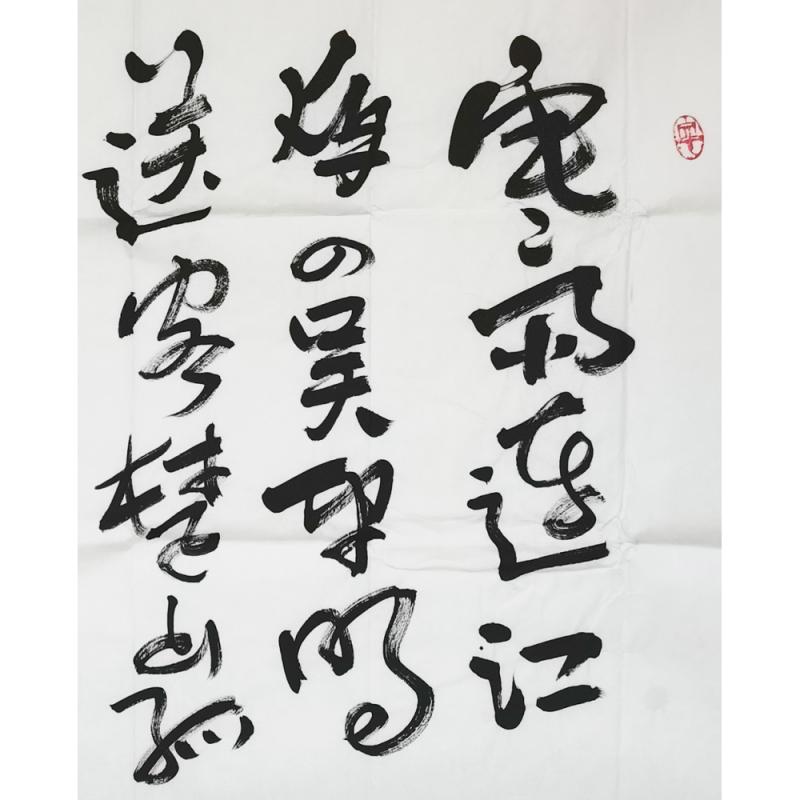 寒雨連江
夜入吴平明
送客楚山孤